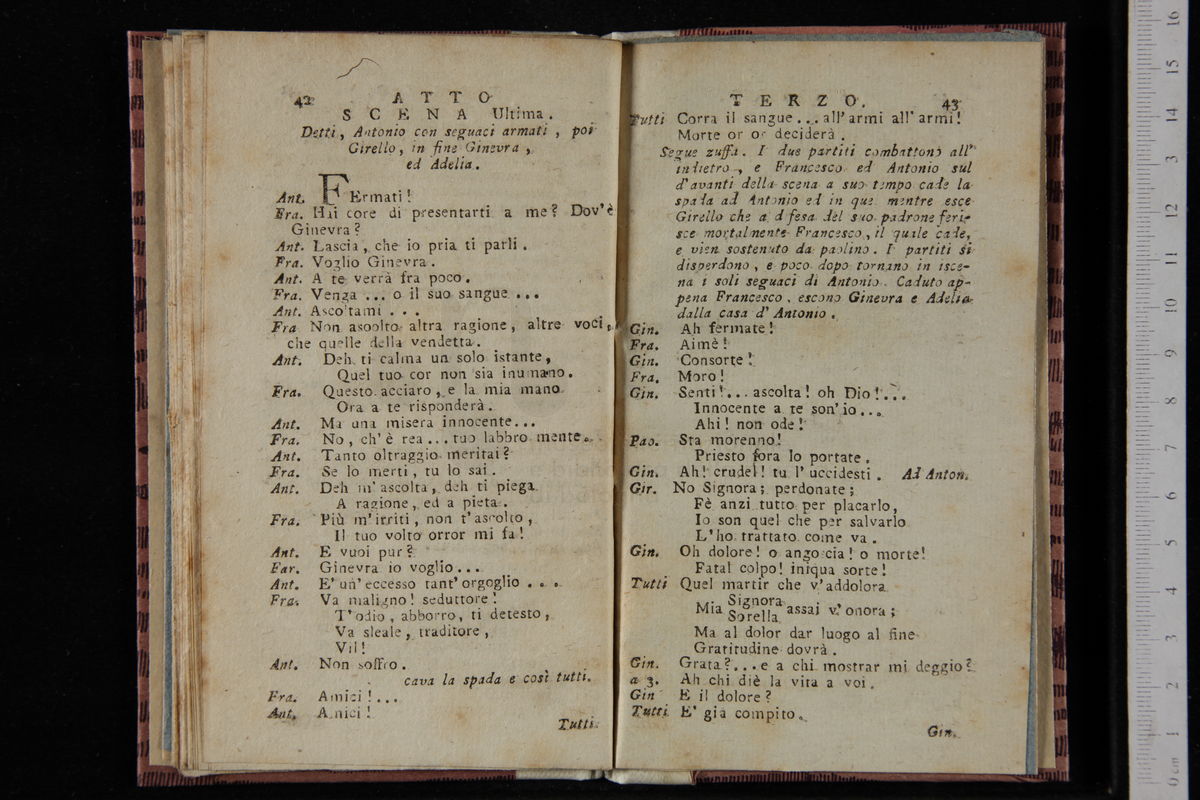 42 ATTO
SCENA Ultima.
Detti, Antonio con seguaci armati, poi
Girello, in fine Ginevra,
ed Adelia.
Ant. FErmati!
Fra. Hai core di presentarti a me? Dov'è
Ginevra?
Ant. Lascia, che io pria ti parli.
Fra. Voglio Ginevra.
Ant. A te verrà fra poco.
Fra. Venga ... o il suo sangue ...
Ant. Ascoltami ...
Fra Non ascolto altra ragione, altre voci,
che quelle della vendetta.
Ant. Deh ti calma un solo istante,
Quel tuo cor non sia inumano.
Fra. Questo acciaro, e la mia mano
Ora a te risponderà.
Ant. Ma una misera innocente...
Fra. No, ch'è rea ... tuo labbro mente.
Ant. Tanto oltraggio meritai?
Fra. Se lo merti, tu lo sai.
Ant. Deh m'ascolta, deh ti piega
A ragione, ed a pieta.
Fra. Più m'irriti, non t'ascolto,
Il tuo volto orror mi fa!
Ant. E vuoi pur?
Far. Ginevra io voglio...
Ant. E' un' eccesso tant' orgoglio ...
Fra. Va maligno! seduttore!
T'odio, abborro, ti detesto,
Va sleale, traditore,
Vil!
Ant. Non soffro.
cava la spada e così tutti.
Fra. Amici!...
Ant. Amici!
Tutti.
TERZO. 43
Tutti Corra il sangue... all' armi all' armi!
Morte or or deciderà.
Segue zuffa. I due partiti combattono all'
indietro, e Francesco ed Antonio sul
d'avanti della scena a suo tempo cade la
spada ad Antonio ed in que mentre esce
Girello che a difesa del suo padrone feri-
sce mortalmente Francesco, il quale cade,
e vien sostenuto da paolino. I partiti si
disperdono, e poco dopo tornano in isce-
na i soli seguaci di Antonio. Caduto ap-
pena Francesco, escono Ginevra e Adelia
dalla casa d'Antonio.
Gin. Ah fermate!
Fra. Aimè!
Gin. Consorte!
Fra. Moro!
Gin. Senti!... ascolta! oh Dio!...
Innocente a te son' io...
Ahi! non ode!
Pao. Sta morenno!
Priesto fora lo portate.
Gin. Ah! crudel! tu l'uccidesti. Ad Anton.
Gir. No Signora; perdonate;
Fè anzi tutto per placarlo,
Io son quel che per salvarlo
L'ho trattato come va.
Gin. Oh dolore! o angoscia! o morte!
Fatal colpo! iniqua sorte!
Tutti Quel martir che v'addolora
Mia Signora
Sorella assai v'onora;
Ma al dolor dar luogo al fine
Gratitudine dovrà.
Gin. Grata?... e a chi mostrar mi deggio?
a 3. Ah chi diè la vita a voi.
Gin E il dolore?
Tutti E' gia compito.
Gin.
16
15
14
13
12
11
10
9
8
7
6
5
4
3
2
1
0 cm